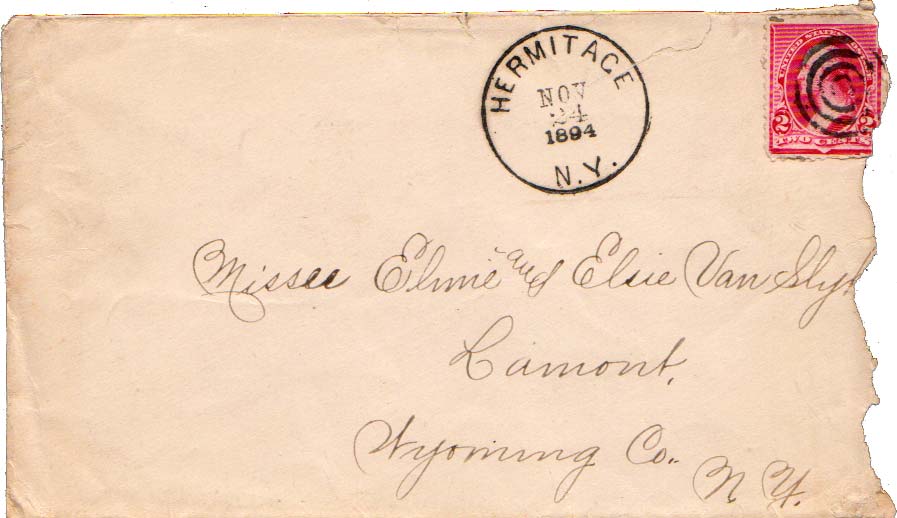 HERMITAGE
NOV
24
1894
N.Y.
UNITED STATES
2 2
TWO CENTS
Misses Elmie and Elsie Van Slyk
Lamont,
Wyoming Co.
N.Y.